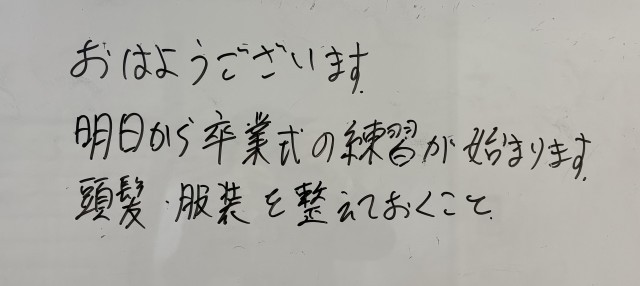 おはようございます.
明日から卒業式の練習が始まります.
頭髪・服装を整えておくこと.